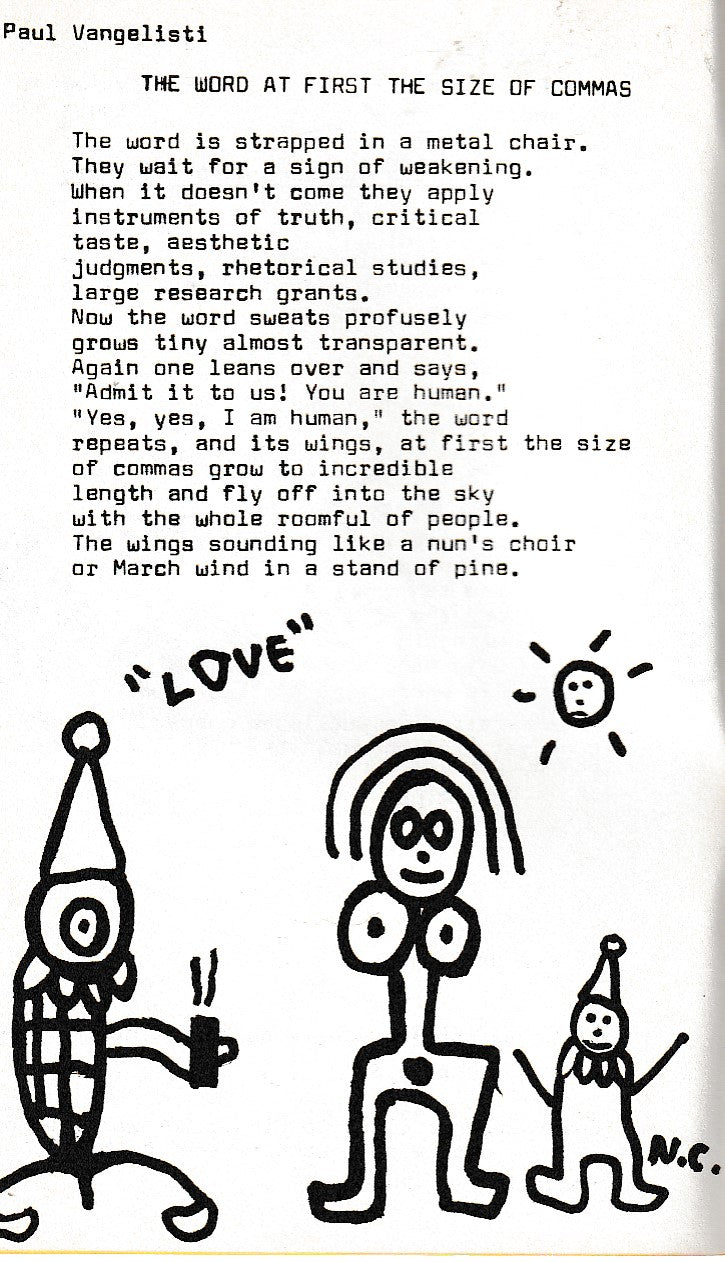 Paul Vangelisti
THE WORD AT FIRST THE SIZE OF COMMAS
The word is strapped in a metal chair.
They wait for a sign of weakening.
When it doesn't come they apply
instruments of truth, critical
taste, aesthetic
judgments, rhetorical studies,
large research grants.
Now the word sweats profusely
grows tiny almost transparent.
Again one leans over and says,
"Admit it to us! You are human."
"Yes, yes, I am human," the word
repeats, and its wings, at first the size
of commas grow to incredible
length and fly off into the sky
with the whole roomful of people.
The wings sounding like a nun's choir
or March wind in a stand of pine.
"LOVE"
N.C.